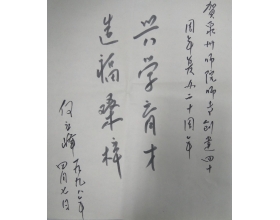 贺泉州师院师专创建四十
周年暨办二十周年
兴学育才
造福桑梓
何立峰
一九九八年
四月七日